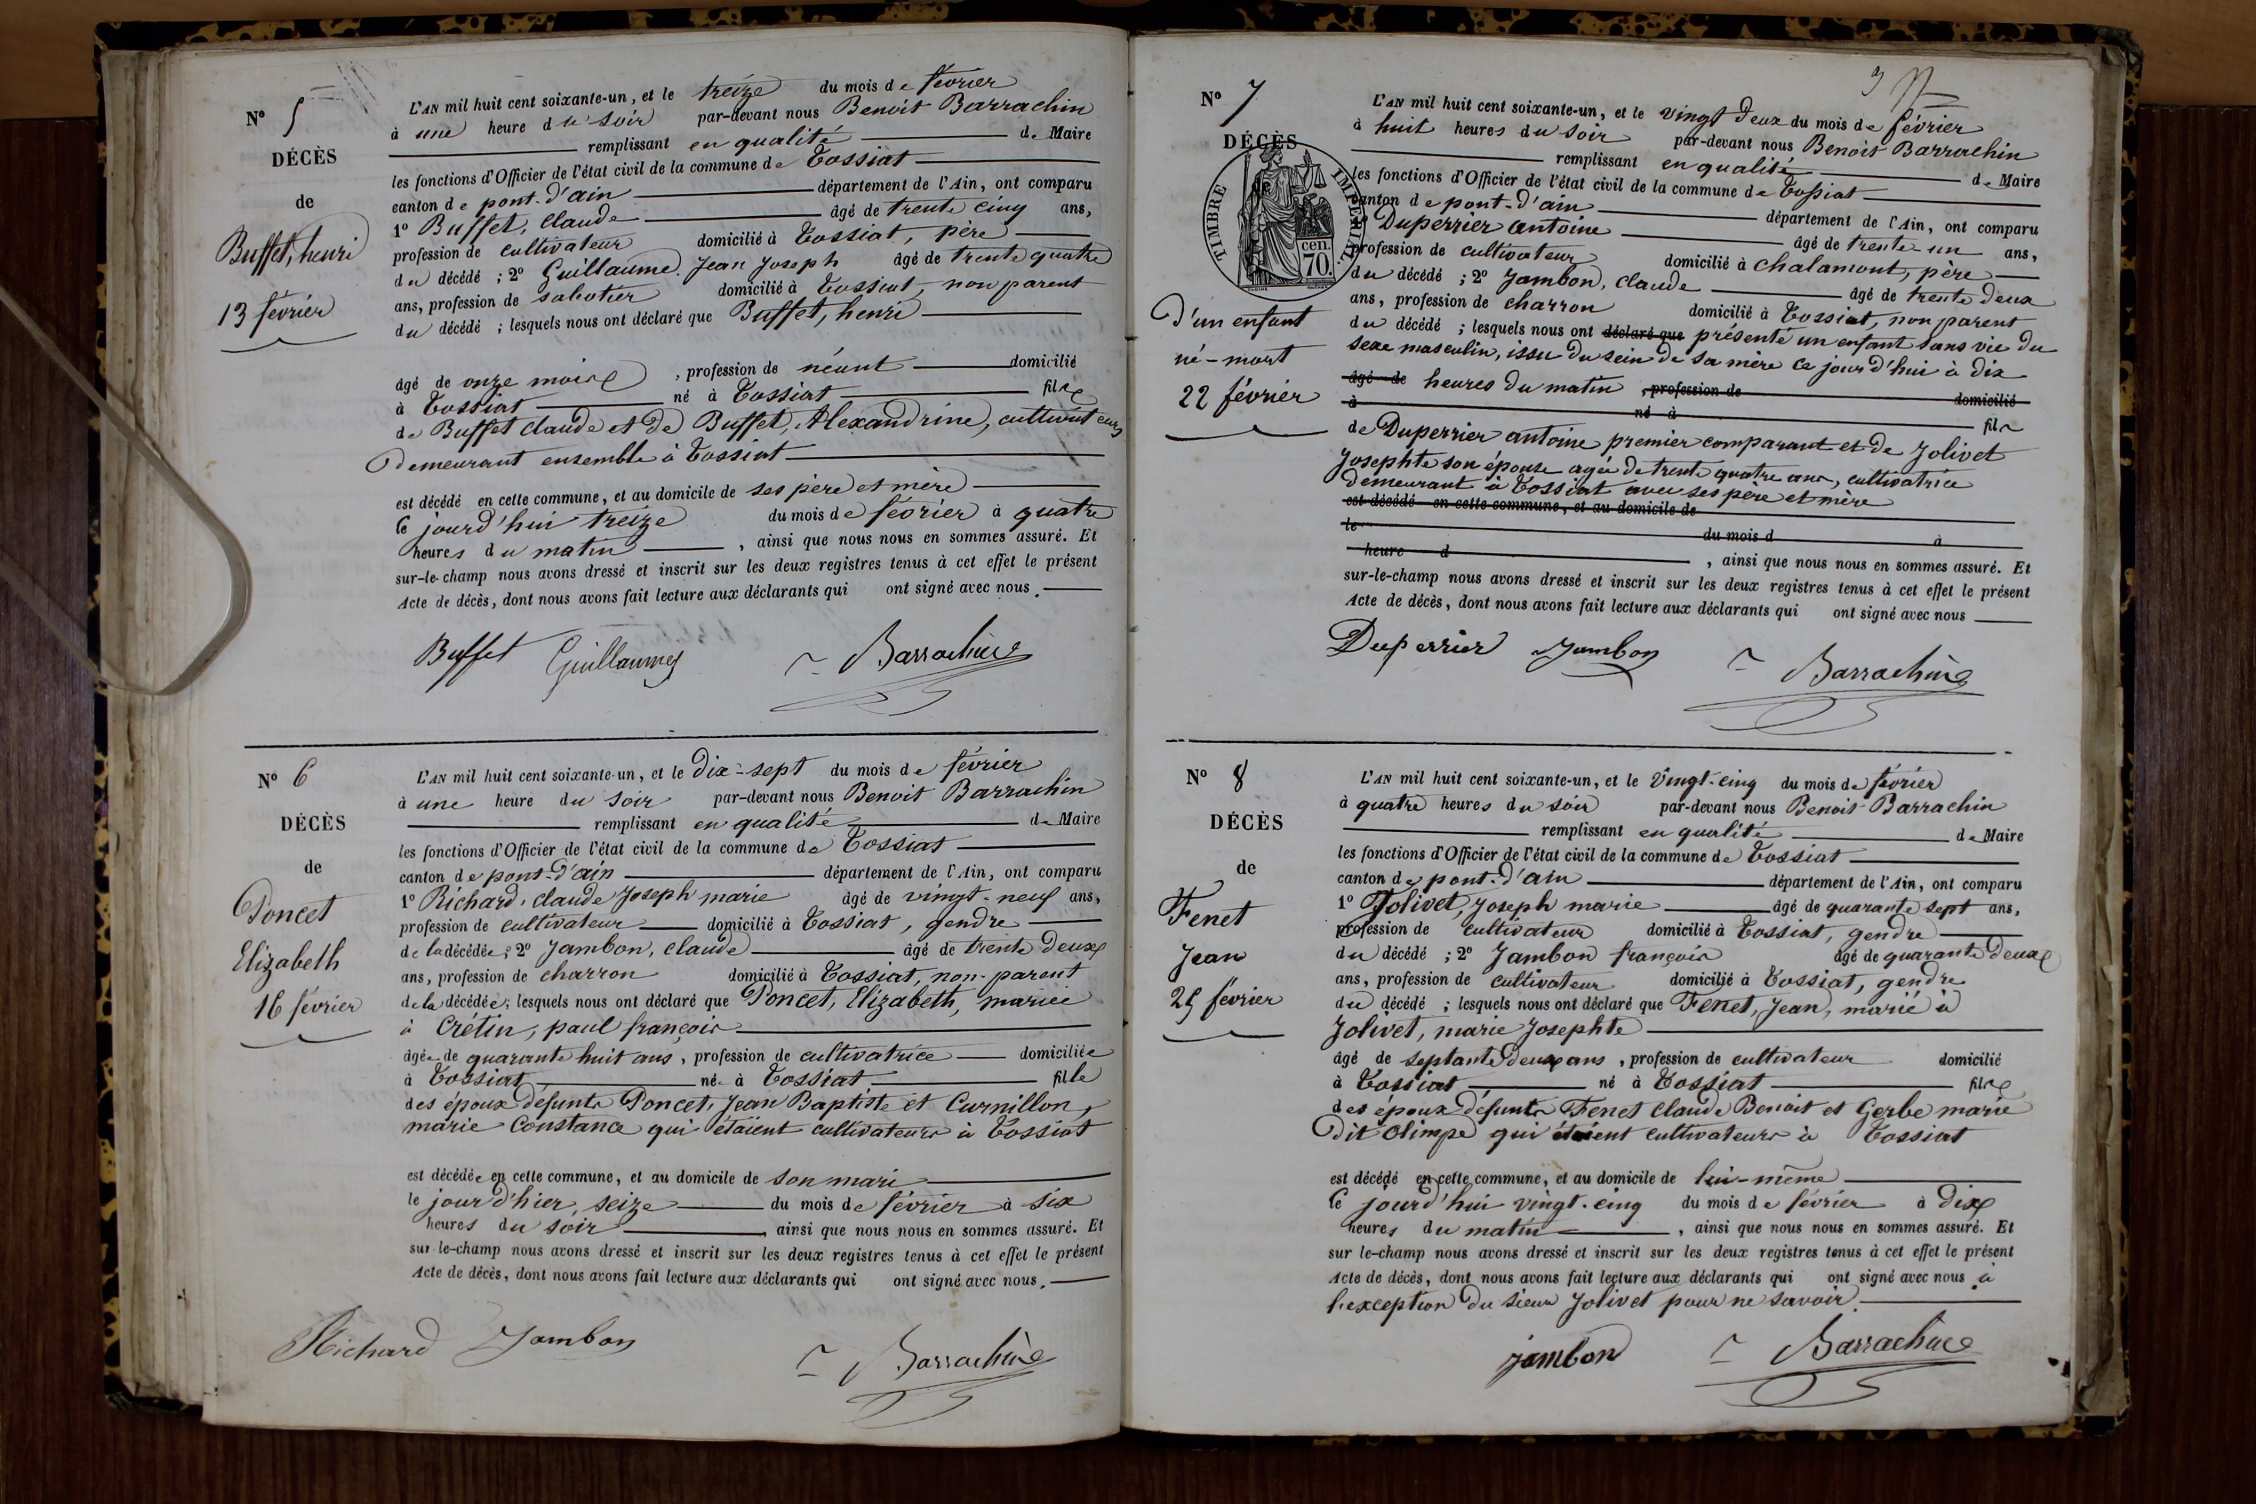 Nº 5
DÉCÈS
de
Buffet, henri
13 février
L'AN mil huit cent soixante-un, et le treize du mois de février
à une heure du soir par-devant nous Benoit Barrachin
remplissant en qualité de Maire
les fonctions d'Officier de l'état civil de la commune de Tossiat
canton de pont-d'ain département de l'Ain, ont comparu
1º Buffet, claude âgé de trente cinq ans,
profession de cultivateur domicilié à Tossiat, père
du décédé ; 2º Guillaume Jean Joseph âgé de trente quatre
ans, profession de sabotier domicilié à Tossiat, non parent
du décédé ; lesquels nous ont déclaré que Buffet, henri
âgé de onze mois , profession de néant domicilié
à Tossiat né à Tossiat fils
de Buffet claude et de Buffet, Alexandrine, cultivateurs
demeurant ensemble à Tossiat
est décédé en cette commune, et au domicile de ses père et mère
Ce jourd'hui treize du mois de février à quatre
heures du matin , ainsi que nous nous en sommes assuré. Et
sur-le-champ nous avons dressé et inscrit sur les deux registres tenus à cet effet le présent
Acte de décès, dont nous avons fait lecture aux déclarants qui ont signé avec nous.
Buffet Guillaume Barrachin
Nº 6
DÉCÈS
de
Poncet
Elizabeth
16 février
L'AN mil huit cent soixante-un, et le dix-sept du mois de février
à une heure du soir par-devant nous Benoit Barrachin
remplissant en qualité de Maire
les fonctions d'Officier de l'état civil de la commune de Tossiat
canton de pont-d'ain département de l'Ain, ont comparu
1º Richard, claude Joseph marie âgé de vingt-neuf ans,
profession de cultivateur domicilié à Tossiat, gendre
de la décédée ; 2º Jambon, claude âgé de trente deux
ans, profession de charron domicilié à Tossiat, non-parent
de la décédée ; lesquels nous ont déclaré que Poncet, Elizabeth, mariée
à Crétin, paul françois
âgée de quarante huit ans, profession de cultivatrice domiciliée
à Tossiat née à Tossiat fille
des époux défunts Poncet, Jean Baptiste et Curnillon,
marie Constance qui étaient cultivateurs à Tossiat
est décédée en cette commune, et au domicile de son mari
le jour d'hier, seize du mois de février à six
heures du soir , ainsi que nous nous en sommes assuré. Et
sur-le-champ nous avons dressé et inscrit sur les deux registres tenus à cet effet le présent
Acte de décès, dont nous avons fait lecture aux déclarants qui ont signé avec nous.
Richard Jambon Barrachin
3
Nº 7
DÉCÈS
de
TIMBRE IMPÉRIAL
cen.
70.
D'un enfant
né-mort
22 février
L'AN mil huit cent soixante-un, et le vingt deux du mois de février
à huit heures du soir par-devant nous Benoit Barrachin
remplissant en qualité de Maire
les fonctions d'Officier de l'état civil de la commune de Tossiat
canton de pont-d'ain département de l'Ain, ont comparu
1º Duperrier antoine âgé de trente un ans,
profession de cultivateur domicilié à chalamont, père
du décédé ; 2º Jambon, claude âgé de trente deux
ans, profession de charron domicilié à Tossiat, non parent
du décédé ; lesquels nous ont déclaré que présenté un enfant sans vie du
sexe masculin, issu du sein de sa mère ce jourd'hui à dix
âgé de heures du matin , profession de domicilié
à né à fils
de Duperrier antoine premier comparant et de Jolivet
Josephte son épouse agée de trente quatre ans, cultivatrice
demeurant à Tossiat avec ses père et mère
est décédé en cette commune, et au domicile de
le du mois d à
heure d , ainsi que nous nous en sommes assuré. Et
sur-le-champ nous avons dressé et inscrit sur les deux registres tenus à cet effet le présent
Acte de décès, dont nous avons fait lecture aux déclarants qui ont signé avec nous
Duperrier Jambon Barrachin
Nº 8
DÉCÈS
de
Fenet
Jean
25 février
L'AN mil huit cent soixante-un, et le vingt-cinq du mois de février
à quatre heures du soir par-devant nous Benoit Barrachin
remplissant en qualité de Maire
les fonctions d'Officier de l'état civil de la commune de Tossiat
canton de pont-d'ain département de l'Ain, ont comparu
1º Jolivet, Joseph marie âgé de quarante sept ans,
profession de cultivateur domicilié à Tossiat, gendre
du décédé ; 2º Jambon françois âgé de quarante deux
ans, profession de cultivateur domicilié à Tossiat, gendre
du décédé ; lesquels nous ont déclaré que Fenet, Jean, marié à
Jolivet, marie Josephte
âgé de septante deux ans, profession de cultivateur domicilié
à Tossiat né à Tossiat fils
des époux défunts Fenet claude Benoit et Gerbe marie
dit Olimpe qui étaient cultivateurs à Tossiat
est décédé en cette commune, et au domicile de lui-même
Ce jourd'hui vingt-cinq du mois de février à dix
heures du matin , ainsi que nous nous en sommes assuré. Et
sur le-champ nous avons dressé et inscrit sur les deux registres tenus à cet effet le présent
Acte de décès, dont nous avons fait lecture aux déclarants qui ont signé avec nous à
l'exception du sieur Jolivet pour ne savoir.
jambon Barrachin